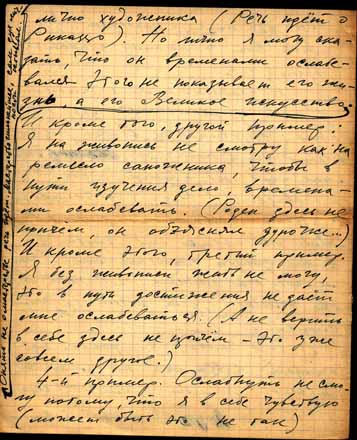 лично художника (Речь идёт о
Пикассо). Но лично я могу ска-
зать, что он временами ослаб-
вался. Этого не показывает его жи-
знь, а его Великое искусство.
И кроме того, другой пример:
Я на живопись не смотрю как на
ремесло сапожника, чтобы в
пути изучения дела, времена-
ми ослабевать. (Роден здесь не
причём, он объяснял дурочке..)
И кроме этого, третий пример.
Я без живописи жить не могу,
это в пути достижения не даёт
мне ослабеваться. (А не верить
в себе здесь не причём – это уже
совсем другое.)
4-й пример. Ослабнуть не смо-
гу потому, что я в себе чувствую
(может быть это не так)
Опять не
речь идёт